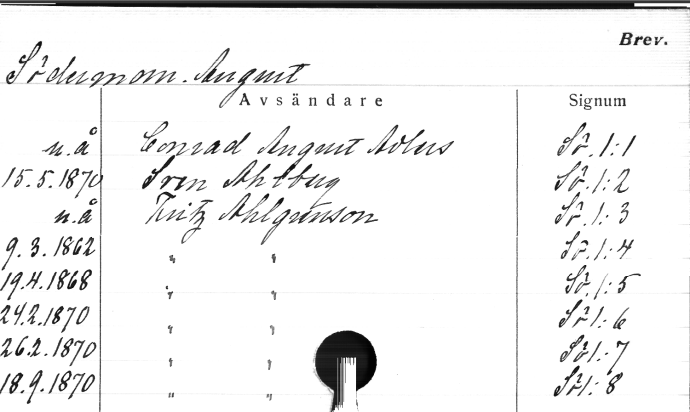 Brev.
Söderman. August
Avsändare Signum
u.å Conrad August Adlers Sö. 1:1
15.5.1870 Sven Ahlberg Sö. 1:2
u.å Fritz Ahlgrensson Sö. 1:3
9.3.1862 " " Sö. 1:4
19.4.1868 " " Sö. 1:5
24.2.1870 " " Sö 1:6
26.2.1870 " " Sö 1:7
18.9.1870 " " Sö 1:8